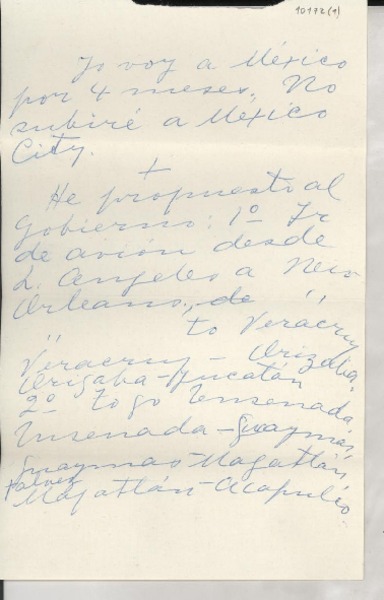 10172(1)
Yo voy a México
por 4 meses. No
subiré a México
City.
+
He propuesto al
Gobierno: 1º Ir
de avión desde
L. Angeles a New
Orleans, de "
" to Veracruz
Veracruz - Orizaba.
Orizaba - Yucatán
2º to go Ensenada.
Ensenada - Guaymas,
Guaymas - Mazatlán
talvez
Mazatlán - Acapulco.